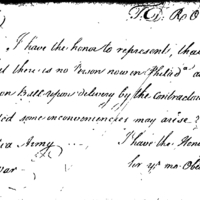 To. R O
I have the honor to represent, tha
t there is no Person now in Philad.ª a
on Ball upon delivery by the Contractor
ed some inconveniencies may arise
a Army I have the Hono
war Sir yr. mo. Obe